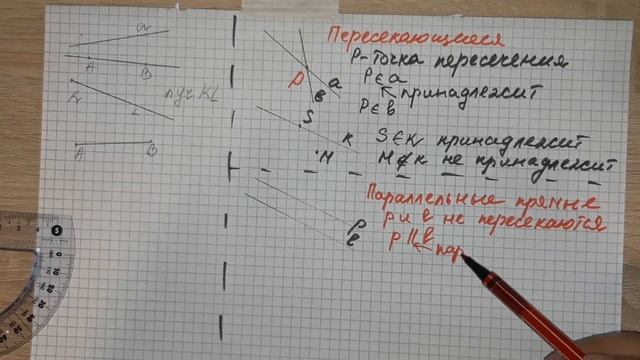 a
A B
K
L луч KL
A B
Пересекающиеся
P - точка пересечения
P ∈ a
принадлежит
P ∈ в
P a
в
S
K
M
S ∈ K принадлежит
M ∉ K не принадлежит
Параллельные прямые
p и в не пересекаются
p || в
пар
p
в